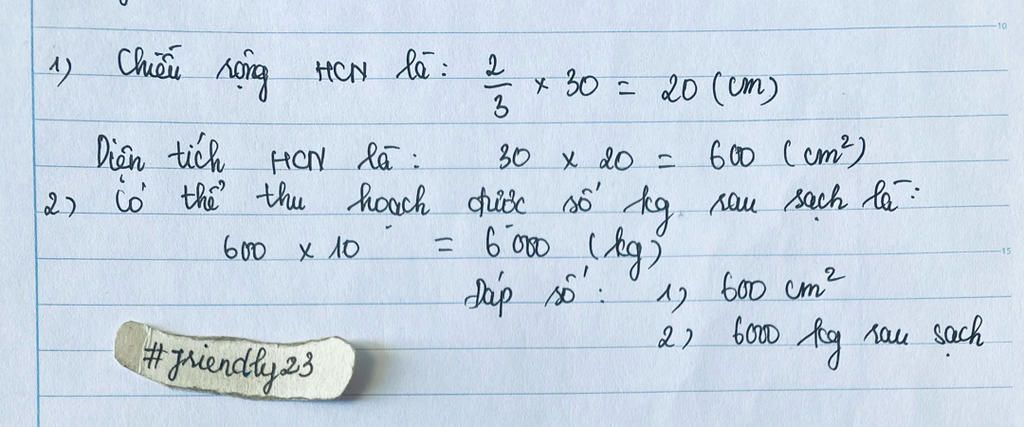 10
1) Chiều rộng HCN là: 2/3 × 30 = 20 (cm)
Diện tích HCN là: 30 × 20 = 600 (cm²)
2) Có thể thu hoạch được số kg rau sạch là:
600 × 10 = 6000 (kg)
15
Đáp số: 1) 600 cm²
2) 6000 kg rau sạch
#friendly23